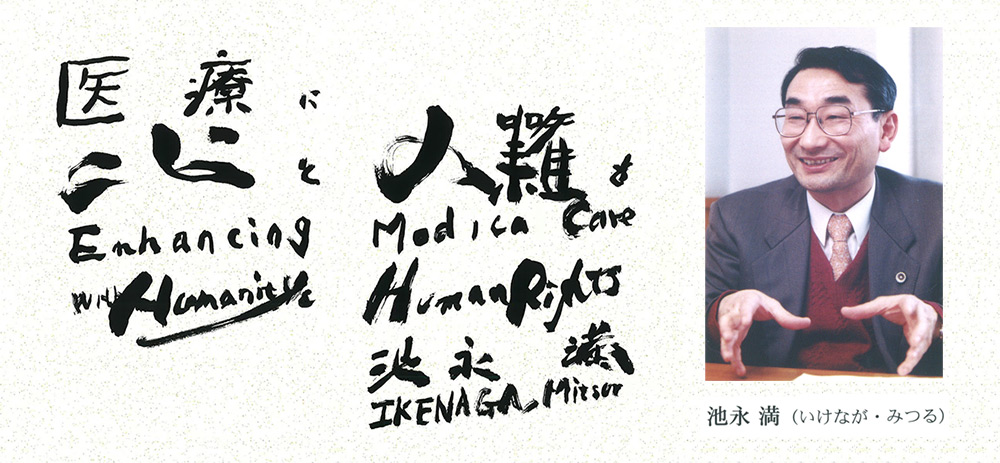 医療に
心と 人権を
Enhancing Medica Care
With Humanity & Human Rights
池永 満
IKENAGA, Mitsur
池永 満（いけなが・みつる）